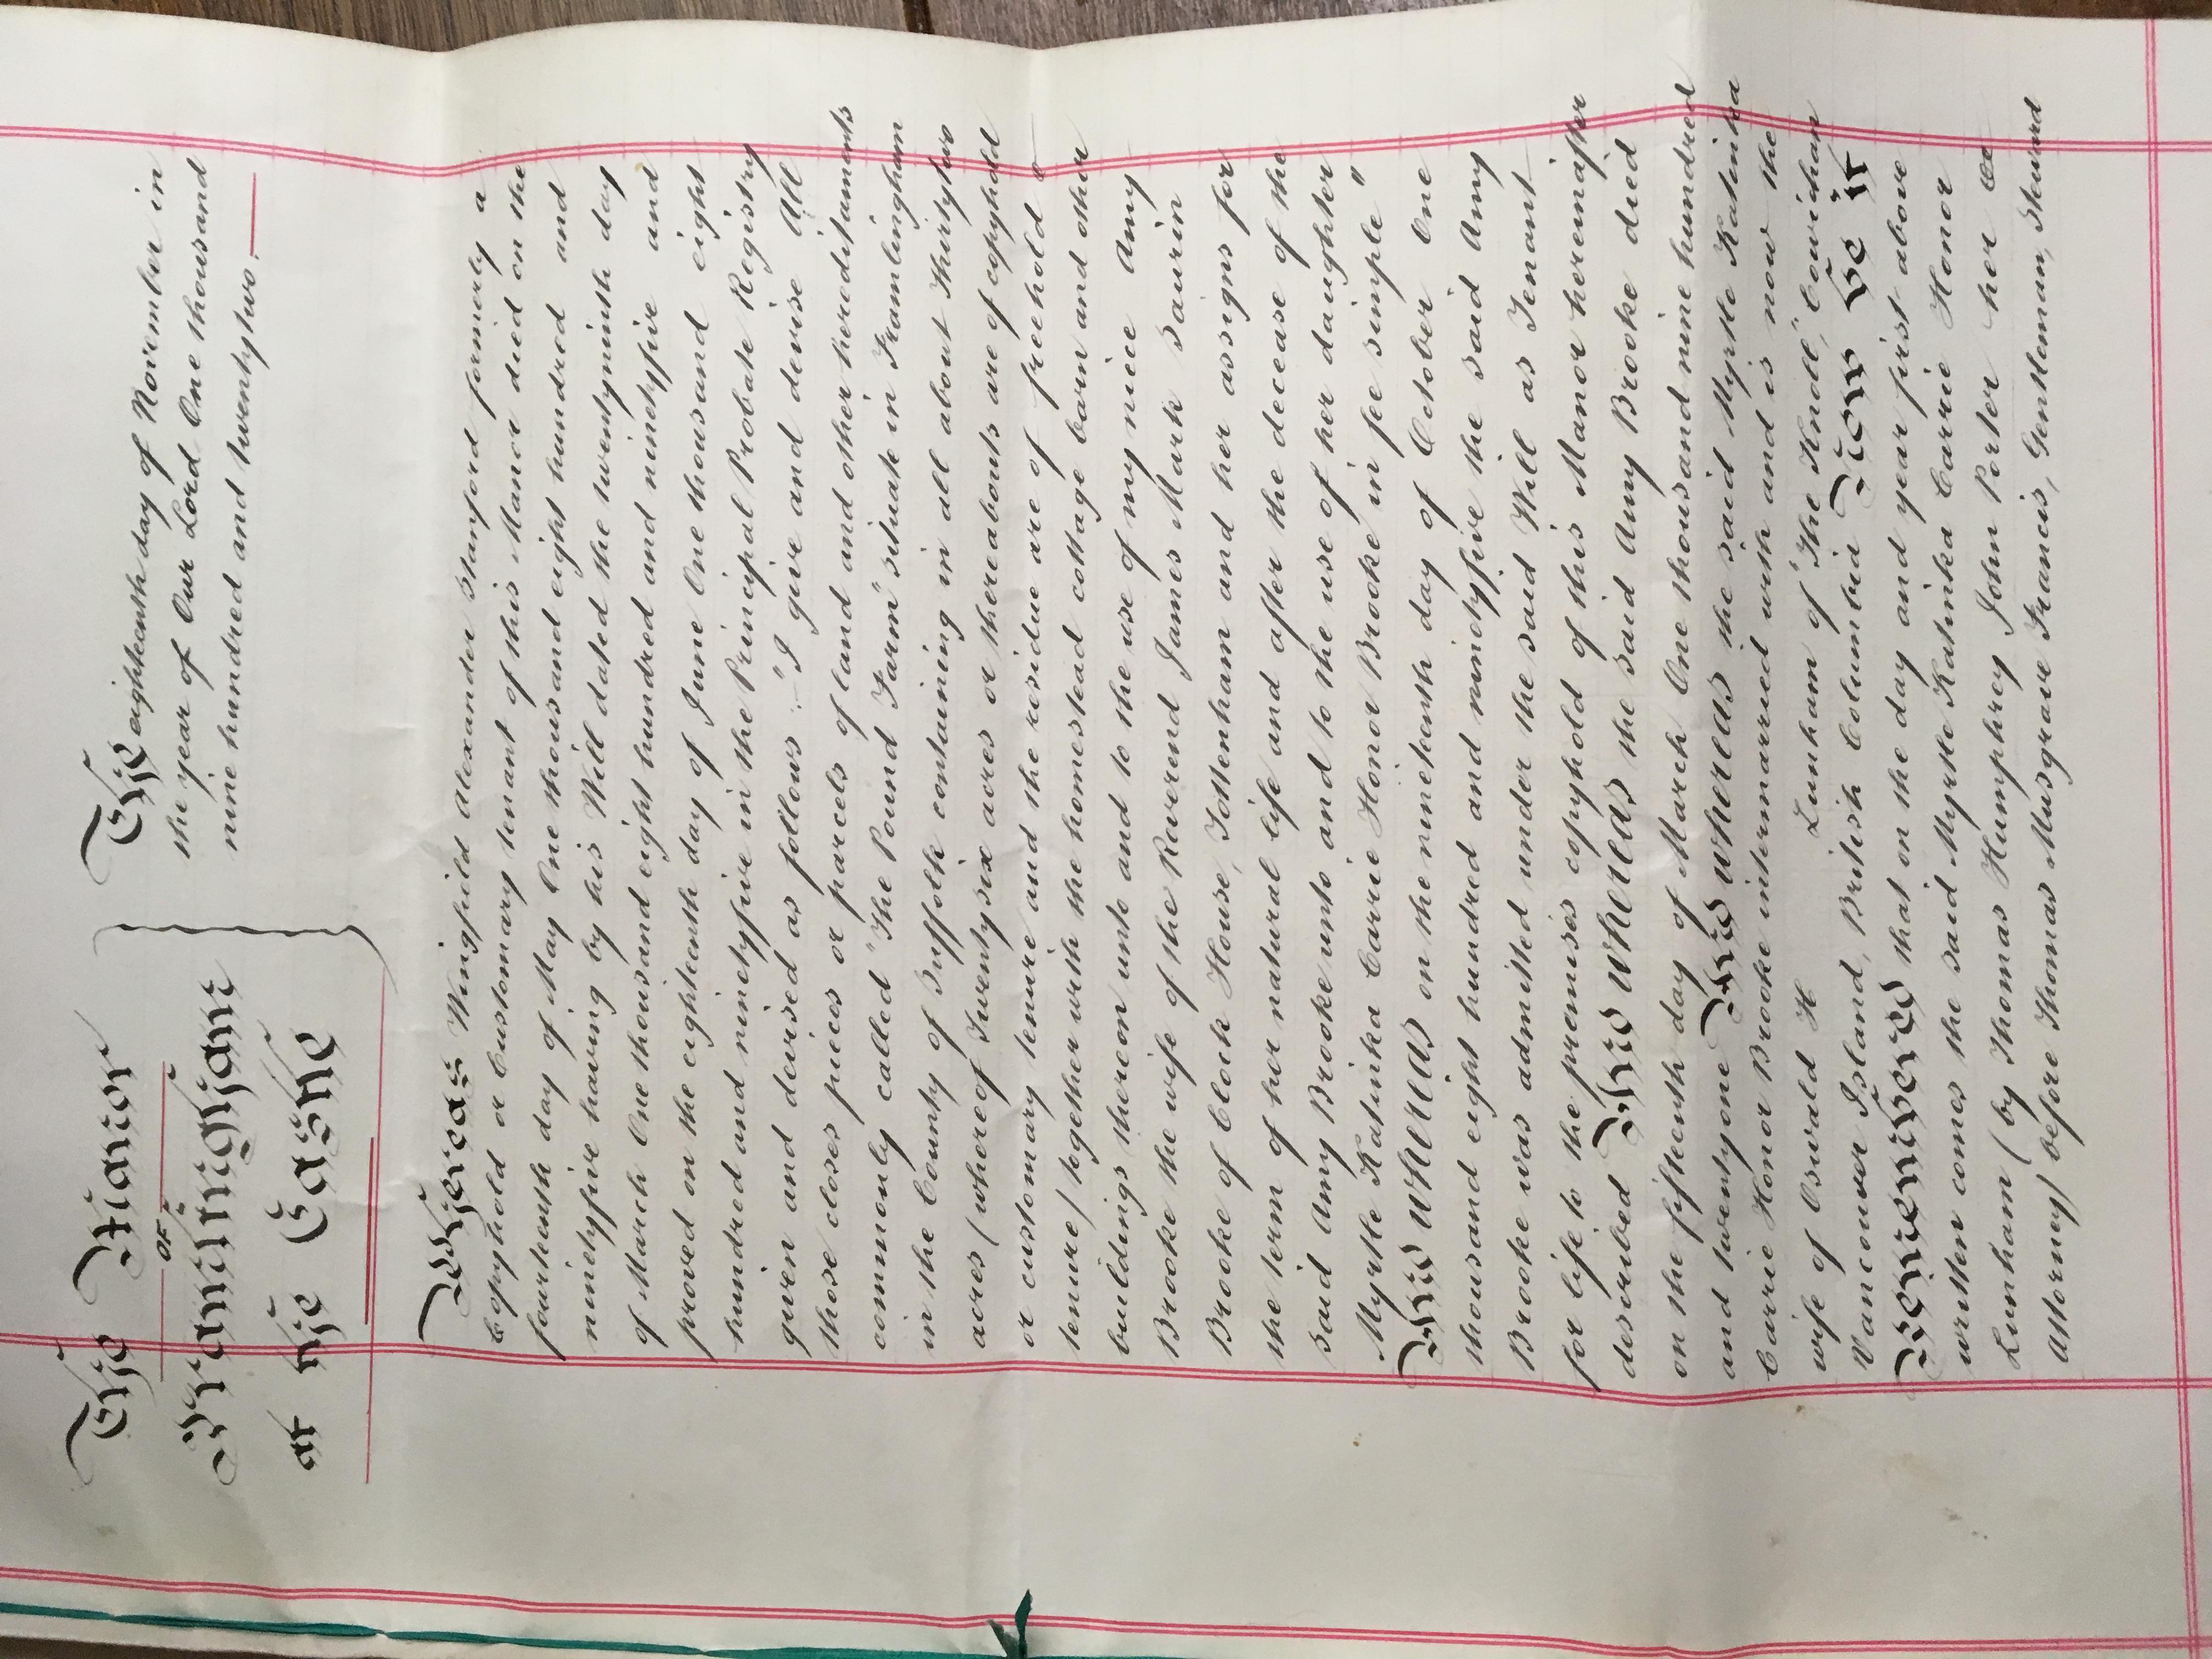 The Manor
OF
Framlingham
at the Castle
The eighteenth day of November in
the year of Our Lord One thousand
nine hundred and twentytwo.
Whereas Wingfield Alexander Stanford formerly a
Copyhold or Customary tenant of this Manor died on the
fourteenth day of May One thousand eight hundred and
ninetyfive having by his Will dated the twentyninth day
of March One thousand eight hundred and ninetyfive and
proved on the eighteenth day of June One thousand eight
hundred and ninetyfive in the Principal Probate Registry
given and devised as follows :- "I give and devise All
those closes pieces or parcels of land and other hereditaments
commonly called "The Pound Farm" situate in Framlingham
in the County of Suffolk containing in all about Thirtytwo
acres (whereof Twentysix acres or thereabouts are of copyhold
or customary tenure and the residue are of freehold
tenure) together with the homestead cottage barn and other
buildings thereon unto and to the use of my niece Amy
Brooke the wife of the Reverend James Mark Saurin
Brooke of Clock House, Tottenham and her assigns for
the term of her natural life and after the decease of the
said Amy Brooke unto and to the use of her daughter
Myrtle Katinka Carrie Honor Brooke in fee simple"
And Whereas on the nineteenth day of October One
thousand eight hundred and ninetyfive the said Amy
Brooke was admitted under the said Will as Tenant
for life to the premises copyhold of this Manor hereinafter
described And Whereas the said Amy Brooke died
on the fifteenth day of March One thousand nine hundred
and twentyone And Whereas the said Myrtle Katinka
Carrie Honor Brooke intermarried with and is now the
wife of Oswald H Lunham of "The Knoll," Cowichan
Vancouver Island, British Columbia Now be it
Remembered that on the day and year first above
written comes the said Myrtle Katinka Carrie Honor
Lunham (by Thomas Humphrey John Porter her
Attorney) before Thomas Musgrave Francis, Gentleman, Steward